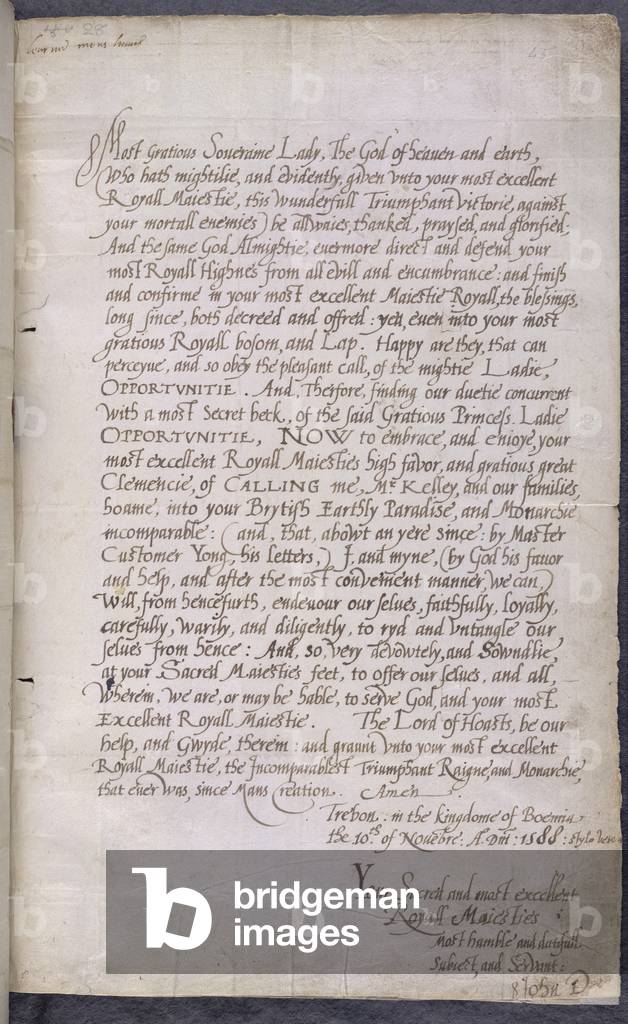 28
Most Gratious Soueraine Lady, The God of heauen and earth,
(Who hath mightilie, and evidently, given vnto your most excellent
Royall Maiestie, this wunderfull Triumphant Victorie, against
your mortall enemies) be allwaies, thanked, praysed, and glorified;
And the same God Almightie, euermore direct and defend your
most Royall Highnes from all evill and encumbrance: and finish
and confirme in your most excellent Maiestie Royall, the blessings,
long since, both decreed and offred: yea, even into your most
gratious Royall bosom, and Lap. Happy are they, that can
perceyue, and so obey the pleasant call, of the mightie Ladie,
OPPORTVNITIE. And, Therfore, finding our duetie concurrent
with a most Secret beck, of the said Gratious Princess, Ladie
OPPORTVNITIE, NOW to embrace, and enioye, your
most excellent Royall Maiesties high favor, and gratious great
Clemencie, of CALLING me, Mr. Kelley, and our families,
hoame, into your Brytish Earthly Paradise, and Monarchie
incomparable: (and, that, abowt an yere since: by Master
Customer Yong, his letters,) I, and myne, (by God his fauor
and help, and after the most convenient manner, we can,)
Will, from hencefurth, endeuour our selues, faithfully, loyally,
carefully, warily, and diligently, to ryd and vntangle our
selues from hence: And, so, very devowtely, and Sowndlie,
at your Sacred Maiesties feet, to offer our selues, and all,
Wherein, we are, or may be hable, to serve God, and your most
Excellent Royall Maiestie. The Lord of Hoasts, be our
help, and Gwyde, therein: and graunt vnto your most excellent
Royall Maiestie, the Incomparablest Triumphant Raigne, and Monarchie,
that euer was, since Mans Creation. Amen.
Trebon. in the kingdome of Boemia
the 10th of Nouebre: A. Dni: 1588: stylo
Your Sacred and most excellent
Royall Maiesties
Most humble and dutifull
Subiect, and Servant:
John D
b bridgeman
images